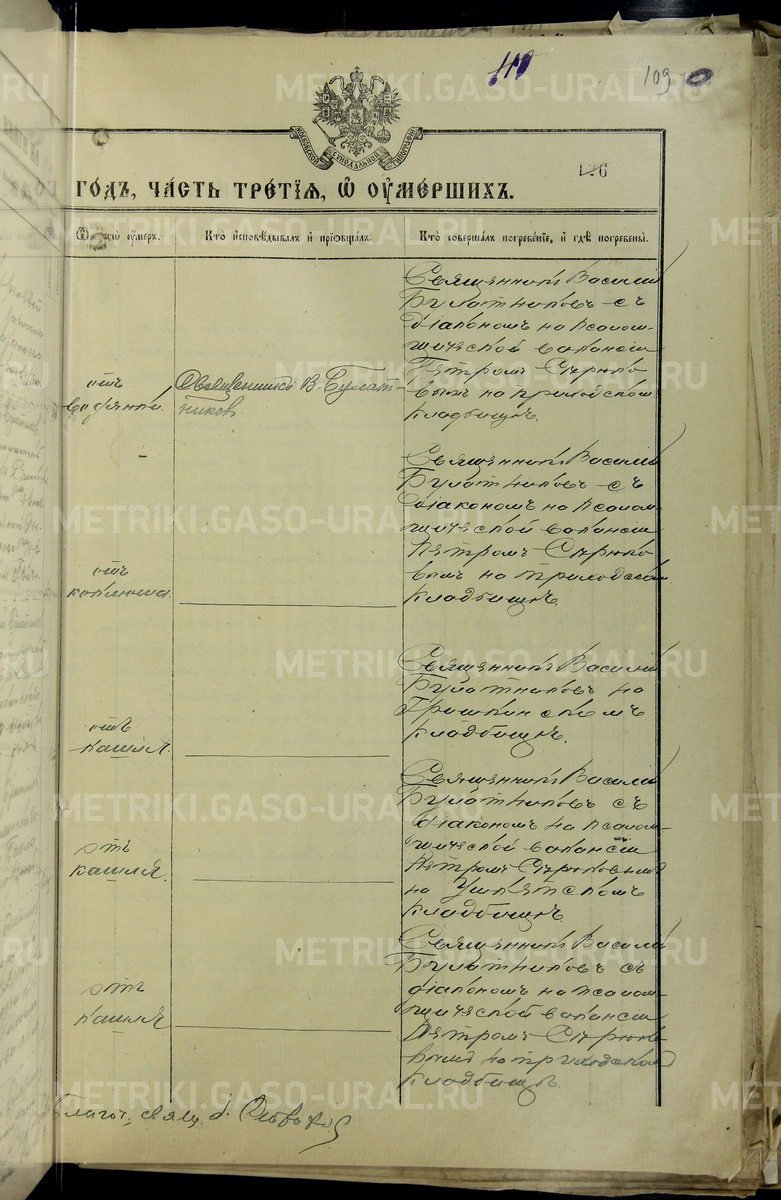 110
109
МОСКОВСКОЙ СѴНОДАЛЬНОЙ ТИПОГРАФІИ
126
ГОДЪ, ЧАСТЬ ТРЕТІЯ, Ѡ ОУМЕРШИХЪ.
чегѡ оумеръ.
Кто исповѣдывалъ и пріобщалъ.
Кто совершалъ погребеніе, и гдѣ погребены.
отъ
водянки.
Священникъ В. Булат-
ников
Священникъ Василій
Булатниковъ съ
діакономъ на псалом-
щической вакансіи
Петромъ Сѣрюко
вымъ на приходскомъ
кладбищѣ.
отъ
коклюша.
Священникъ Василій
Булатниковъ съ
діакономъ на псалом-
щической вакансіи
Петромъ Сѣрюко
вымъ на приходскомъ
кладбищѣ.
отъ
кашля.
Священникъ Василій
Булатниковъ на
кладбищѣ.
отъ
кашля.
Священникъ Василій
Булатниковъ съ
діакономъ на псалом-
щической вакансіи
Петромъ Сѣрюковымъ
на Ушкятскомъ
кладбищѣ.
отъ
кашля
Священникъ Василій
Булатниковъ съ
діакономъ на псалом-
щической вакансіи
Петромъ Сѣрюко
вымъ на приходскомъ
кладбищѣ.
Благоч. свящ.
METRIKI.GASO-URAL.RU